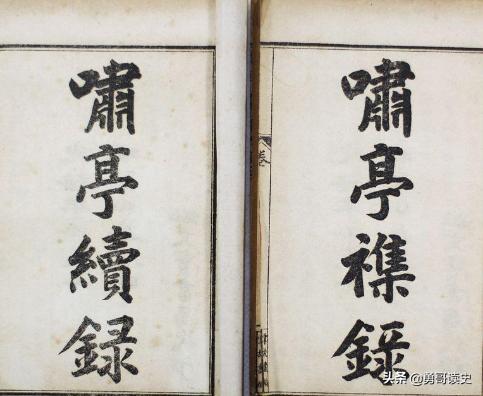 嘯亭襍錄
嘯亭續錄
卷
头条 @勇哥读史